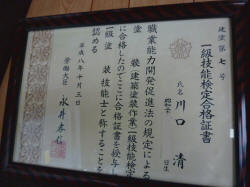 建塗第七号
一級技能検定合格証書
氏名 川口 清
職業能力開発促進法の規定による
塗装 建築塗装作業一級技能検定
に合格したのでここに合格証書を授与し
一級塗装技能士と称することを
認める
平成八年十月三日
労働大臣